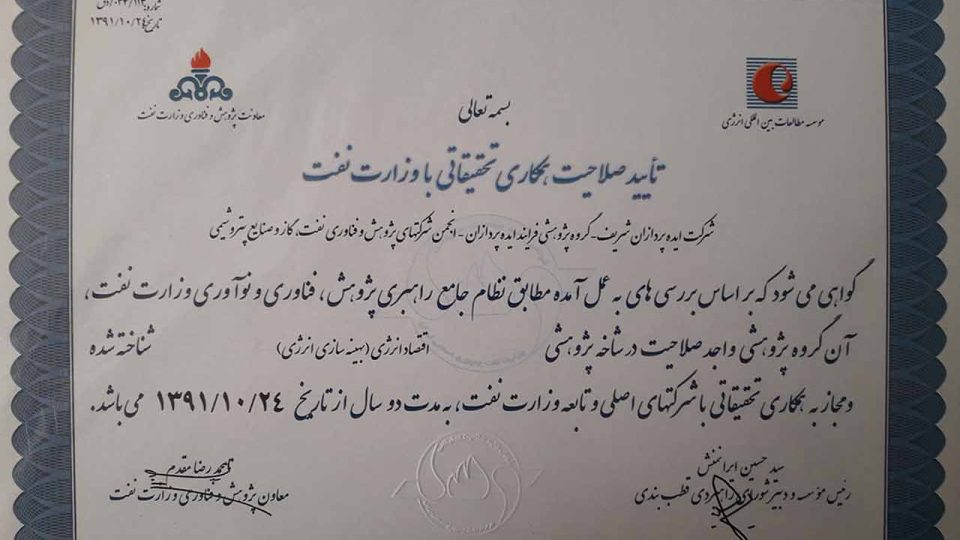 تاریخ: ۱۳۹۱/۱۰/۲۴
موسسه مطالعات بین المللی انرژی
معاونت پژوهش و فناوری وزارت نفت
بسمه تعالی
تأیید صلاحیت همکاری تحقیقاتی با وزارت نفت
شرکت ایده پردازان شریف - گروه پژوهشی فرایند ایده پردازان - انجمن شرکتهای پژوهش و فناوری نفت، گاز و صنایع پتروشیمی
گواهی می شود که بر اساس بررسی های به عمل آمده مطابق نظام جامع راهبری پژوهش، فناوری و نوآوری وزارت نفت،
آن گروه پژوهشی واجد صلاحیت در شاخه پژوهشی اقتصاد انرژی (بهینه سازی انرژی) شناخته شده
و مجاز به همکاری تحقیقاتی با شرکتهای اصلی و تابعه وزارت نفت، به مدت دو سال از تاریخ ۱۳۹۱/۱۰/۲۴ می باشد.
سید حسین ایرانمنش
رئیس مؤسسه و دبیر شورای راهبردی قطب بندی
محمد رضا مقدم
معاون پژوهش و فناوری وزارت نفت